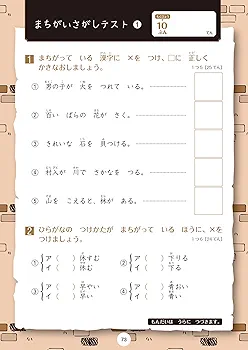 まちがいさがしテスト ①
10
ぷん
てん
1 まちがって いる 漢字に ×を つけ、□に 正しく
かきなおしましょう。
① 男の子が 火を つれて いる。
② 百い ばらの 花が さく。
③ きれいな 石を 貝つける。
④ 村入が 川で さかなを つる。
⑤ 山を こえると、林が ある。
2 ひらがなの つけかたが まちがって いる ほうに、×を
つけましょう。
① ア（ ）休すむ
イ（ ）休む
② ア（ ）下りる
イ（ ）下る
③ ア（ ）早やい
イ（ ）早い
④ ア（ ）青おい
イ（ ）青い
もんだいは うらに つづきます。
73